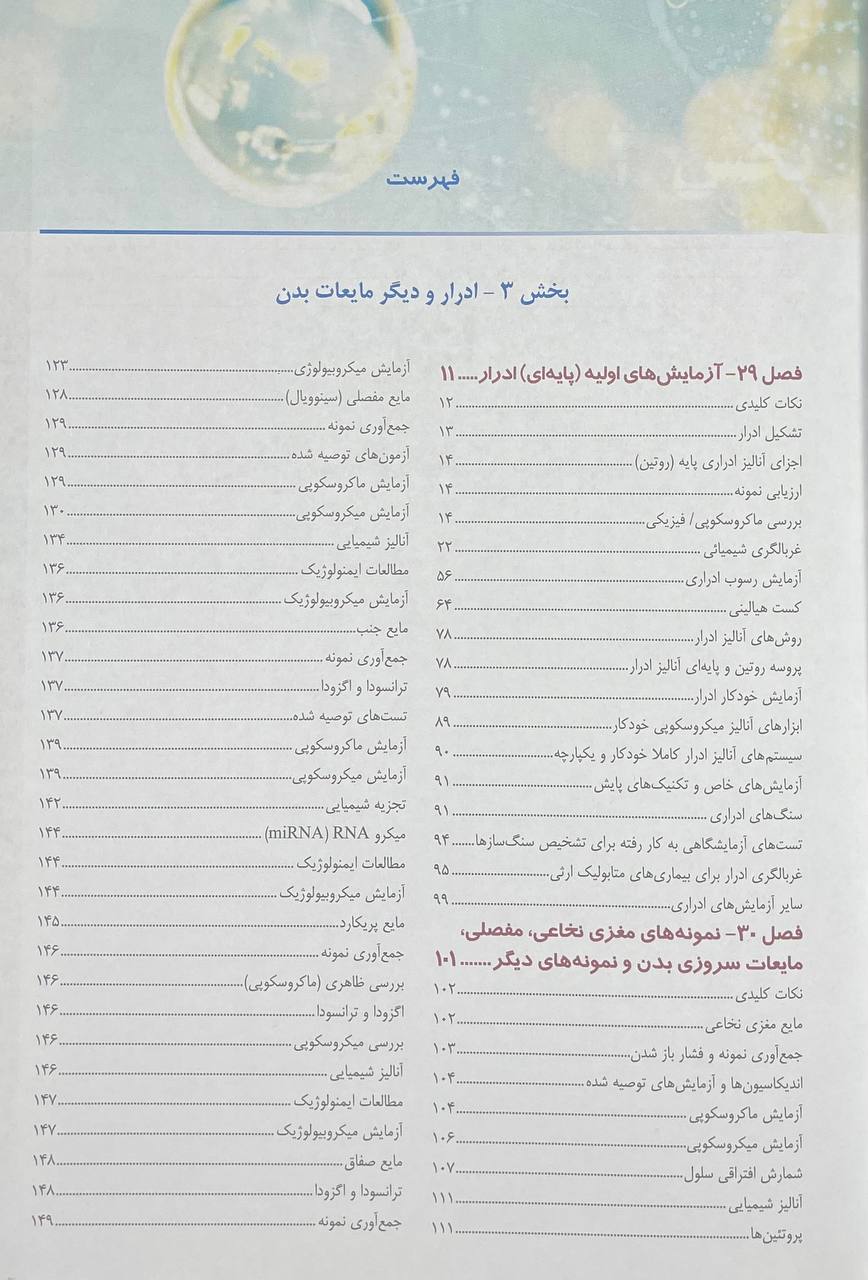 فهرست
بخش ۳ - ادرار و دیگر مایعات بدن
فصل ۲۹- آزمایش‌های اولیه (پایه‌ای) ادرار.....۱۱
نکات کلیدی.....۱۲
تشکیل ادرار.....۱۳
اجزای آنالیز ادراری پایه (روتین).....۱۴
ارزیابی نمونه.....۱۴
بررسی ماکروسکوپی/ فیزیکی.....۱۴
غربالگری شیمیائی.....۲۲
آزمایش رسوب ادراری.....۵۶
کست هیالینی.....۶۴
روش‌های آنالیز ادرار.....۷۸
پروسه روتین و پایه‌ای آنالیز ادرار.....۷۸
آزمایش خودکار ادرار.....۷۹
ابزارهای آنالیز میکروسکوپی خودکار.....۸۹
سیستم‌های آنالیز ادرار کاملا خودکار و یکپارچه.....۹۰
آزمایش‌های خاص و تکنیک‌های پایش.....۹۱
سنگ‌های ادراری.....۹۱
تست‌های آزمایشگاهی به کار رفته برای تشخیص سنگ‌سازها.....۹۴
غربالگری ادرار برای بیماری‌های متابولیک ارثی.....۹۵
سایر آزمایش‌های ادراری.....۹۹
فصل ۳۰- نمونه‌های مغزی نخاعی، مفصلی،
مایعات سروزی بدن و نمونه‌های دیگر.......۱۰۱
نکات کلیدی.....۱۰۲
مایع مغزی نخاعی.....۱۰۲
جمع‌آوری نمونه و فشار باز شدن.....۱۰۳
اندیکاسیون‌ها و آزمایش‌های توصیه شده.....۱۰۴
آزمایش ماکروسکوپی.....۱۰۴
آزمایش میکروسکوپی.....۱۰۶
شمارش افتراقی سلول.....۱۰۷
آنالیز شیمیایی.....۱۱۱
پروتئین‌ها.....۱۱۱
آزمایش میکروبیولوژی.....۱۲۳
مایع مفصلی (سینوویال).....۱۲۸
جمع‌آوری نمونه.....۱۲۹
آزمون‌های توصیه شده.....۱۲۹
آزمایش ماکروسکوپی.....۱۲۹
آزمایش میکروسکوپی.....۱۳۰
آنالیز شیمیایی.....۱۳۴
مطالعات ایمنولوژیک.....۱۳۶
آزمایش میکروبیولوژیک.....۱۳۶
مایع جنب.....۱۳۶
جمع‌آوری نمونه.....۱۳۷
ترانسودا و اگزودا.....۱۳۷
تست‌های توصیه شده.....۱۳۷
آزمایش ماکروسکوپی.....۱۳۹
آزمایش میکروسکوپی.....۱۳۹
تجزیه شیمیایی.....۱۴۲
میکرو RNA (miRNA).....۱۴۴
مطالعات ایمنولوژیک.....۱۴۴
آزمایش میکروبیولوژیک.....۱۴۴
مایع پریکارد.....۱۴۵
جمع‌آوری نمونه.....۱۴۶
بررسی ظاهری (ماکروسکوپی).....۱۴۶
اگزودا و ترانسودا.....۱۴۶
بررسی میکروسکوپی.....۱۴۶
آنالیز شیمیایی.....۱۴۶
مطالعات ایمنولوژیک.....۱۴۷
آزمایش میکروبیولوژیک.....۱۴۷
مایع صفاق.....۱۴۸
ترانسودا و اگزودا.....۱۴۸
جمع‌آوری نمونه.....۱۴۹